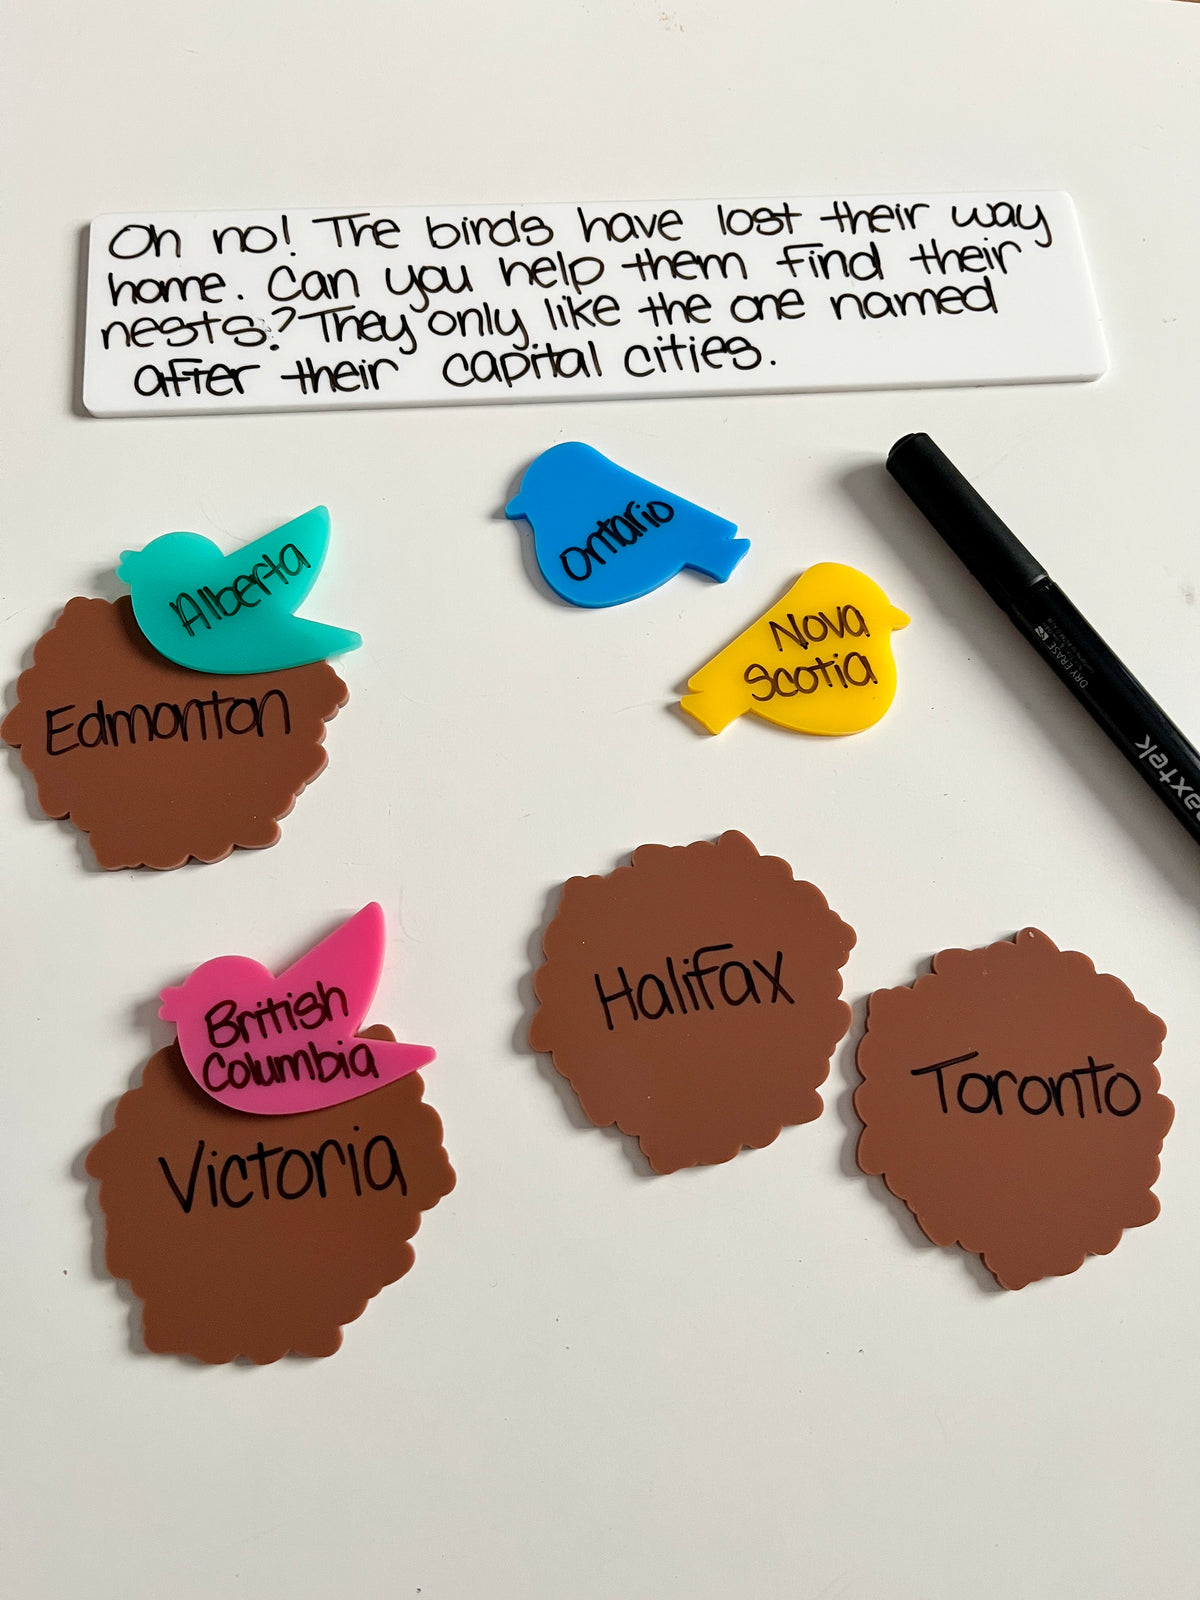 Oh no! The birds have lost their way
home. Can you help them find their
nests? They only like the one named
after their capital cities.
Ontario
Alberta
Nova
Scotia
Edmonton
DRY ERASE
Halifax
British
Columbia
Toronto
Victoria